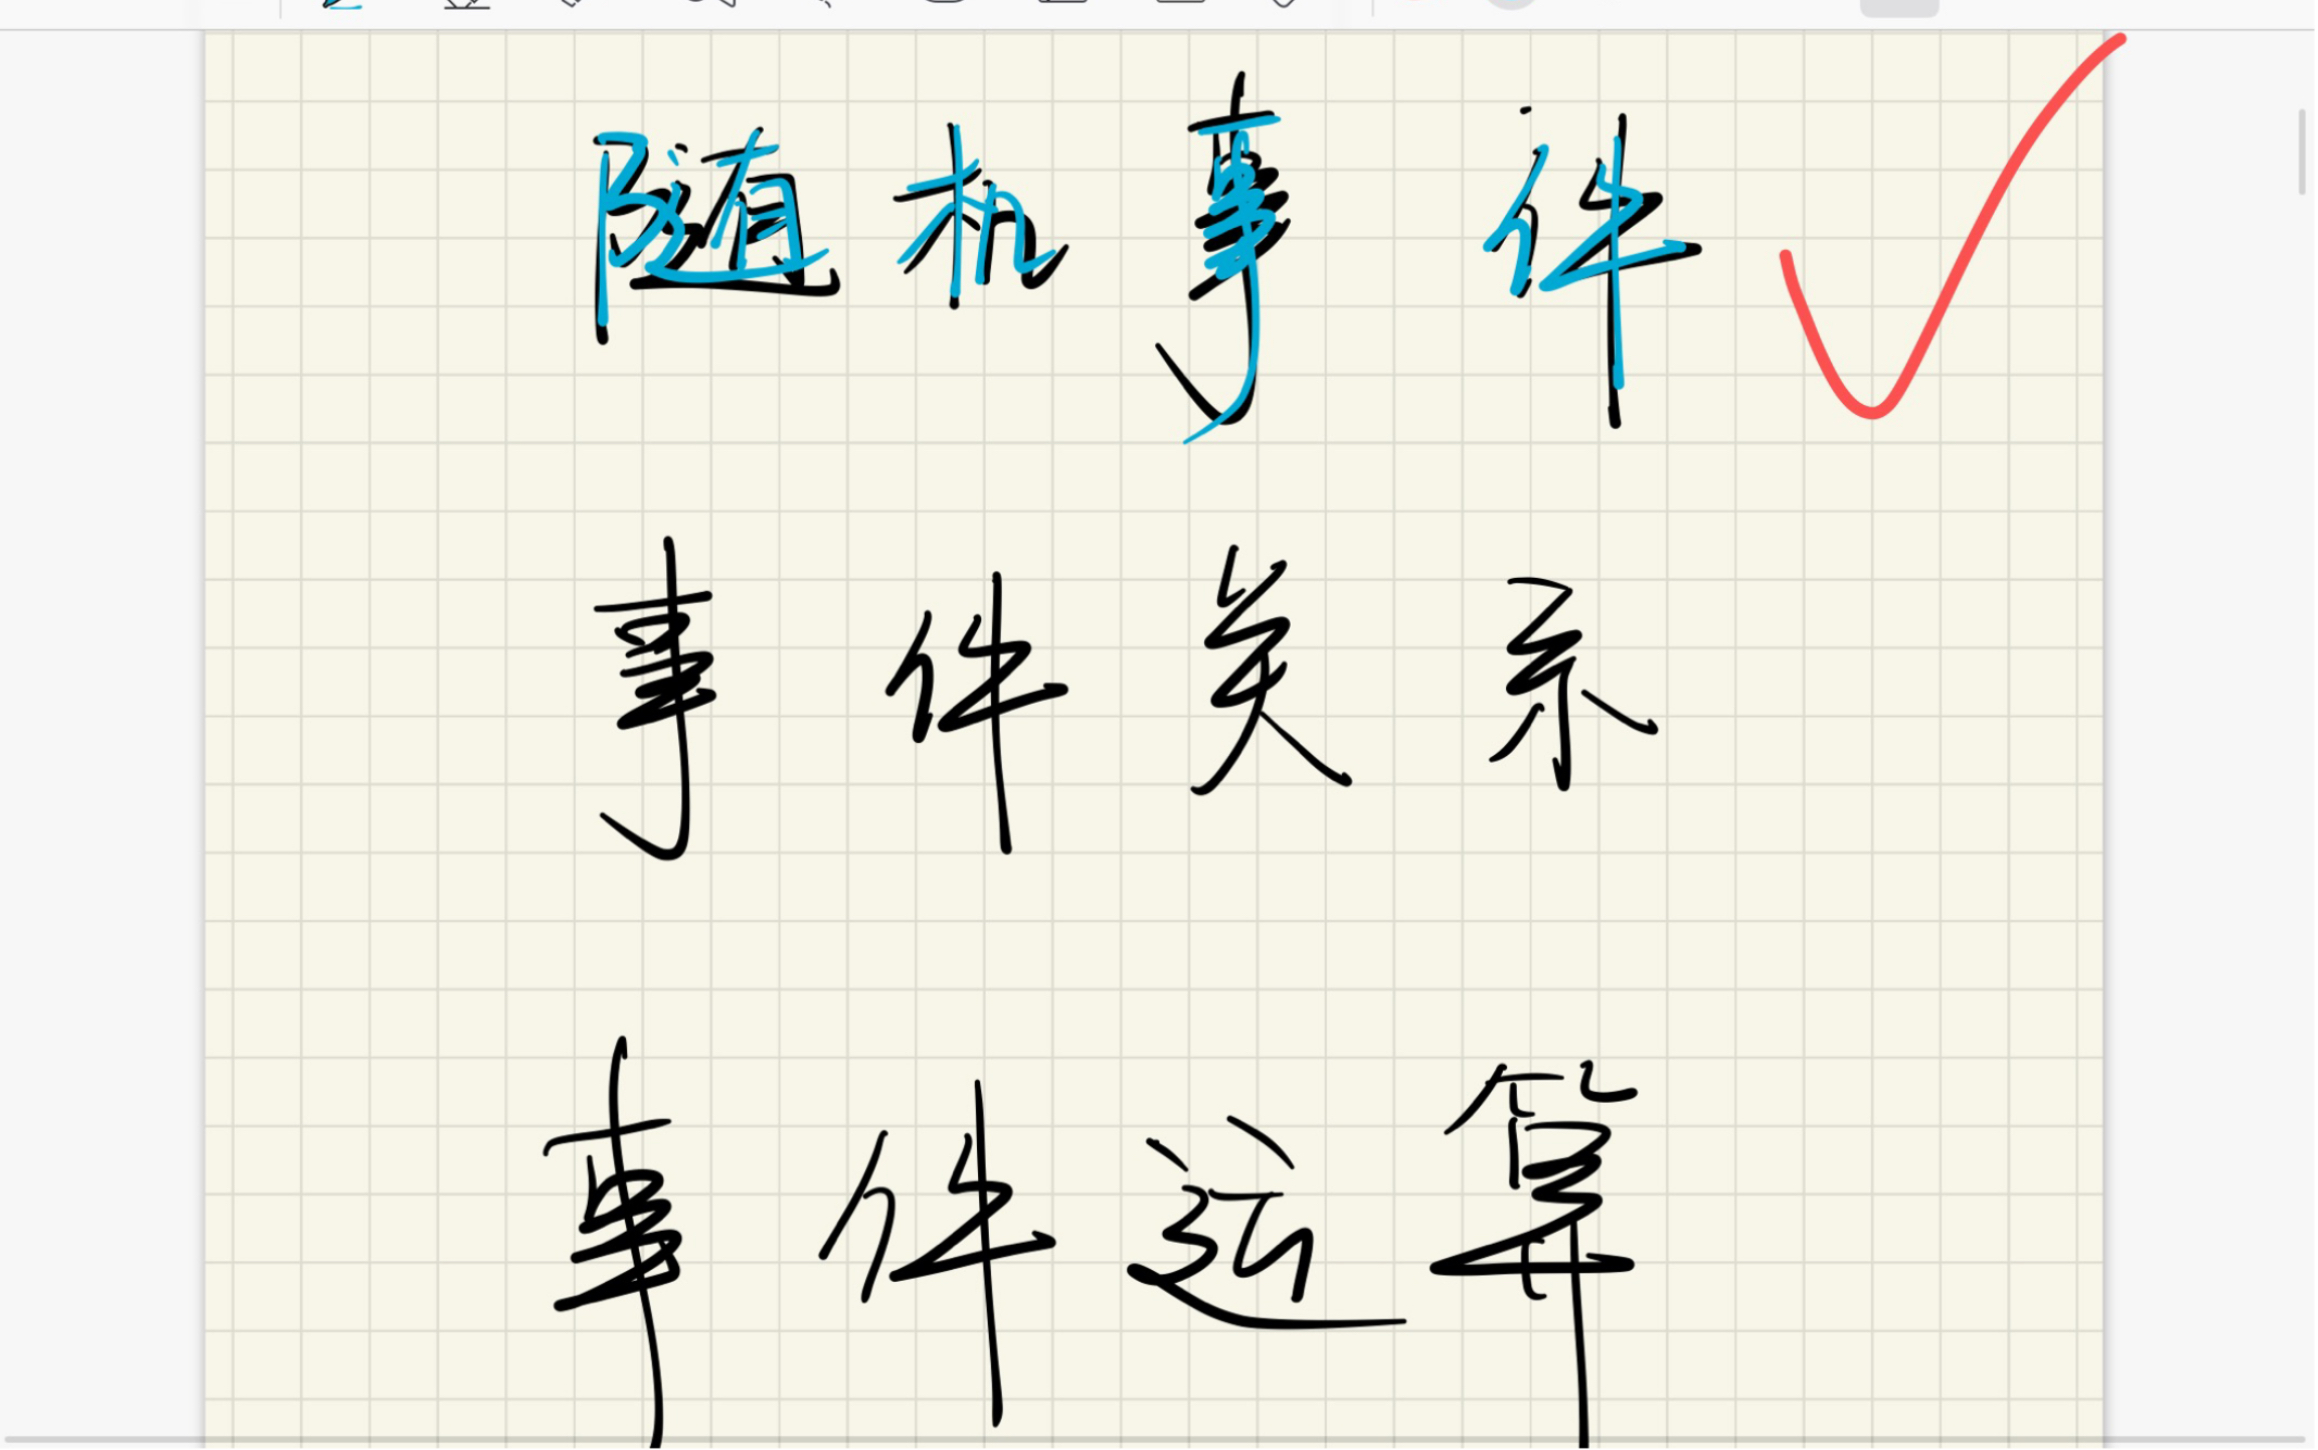 随机事件
事件关系
事件运算